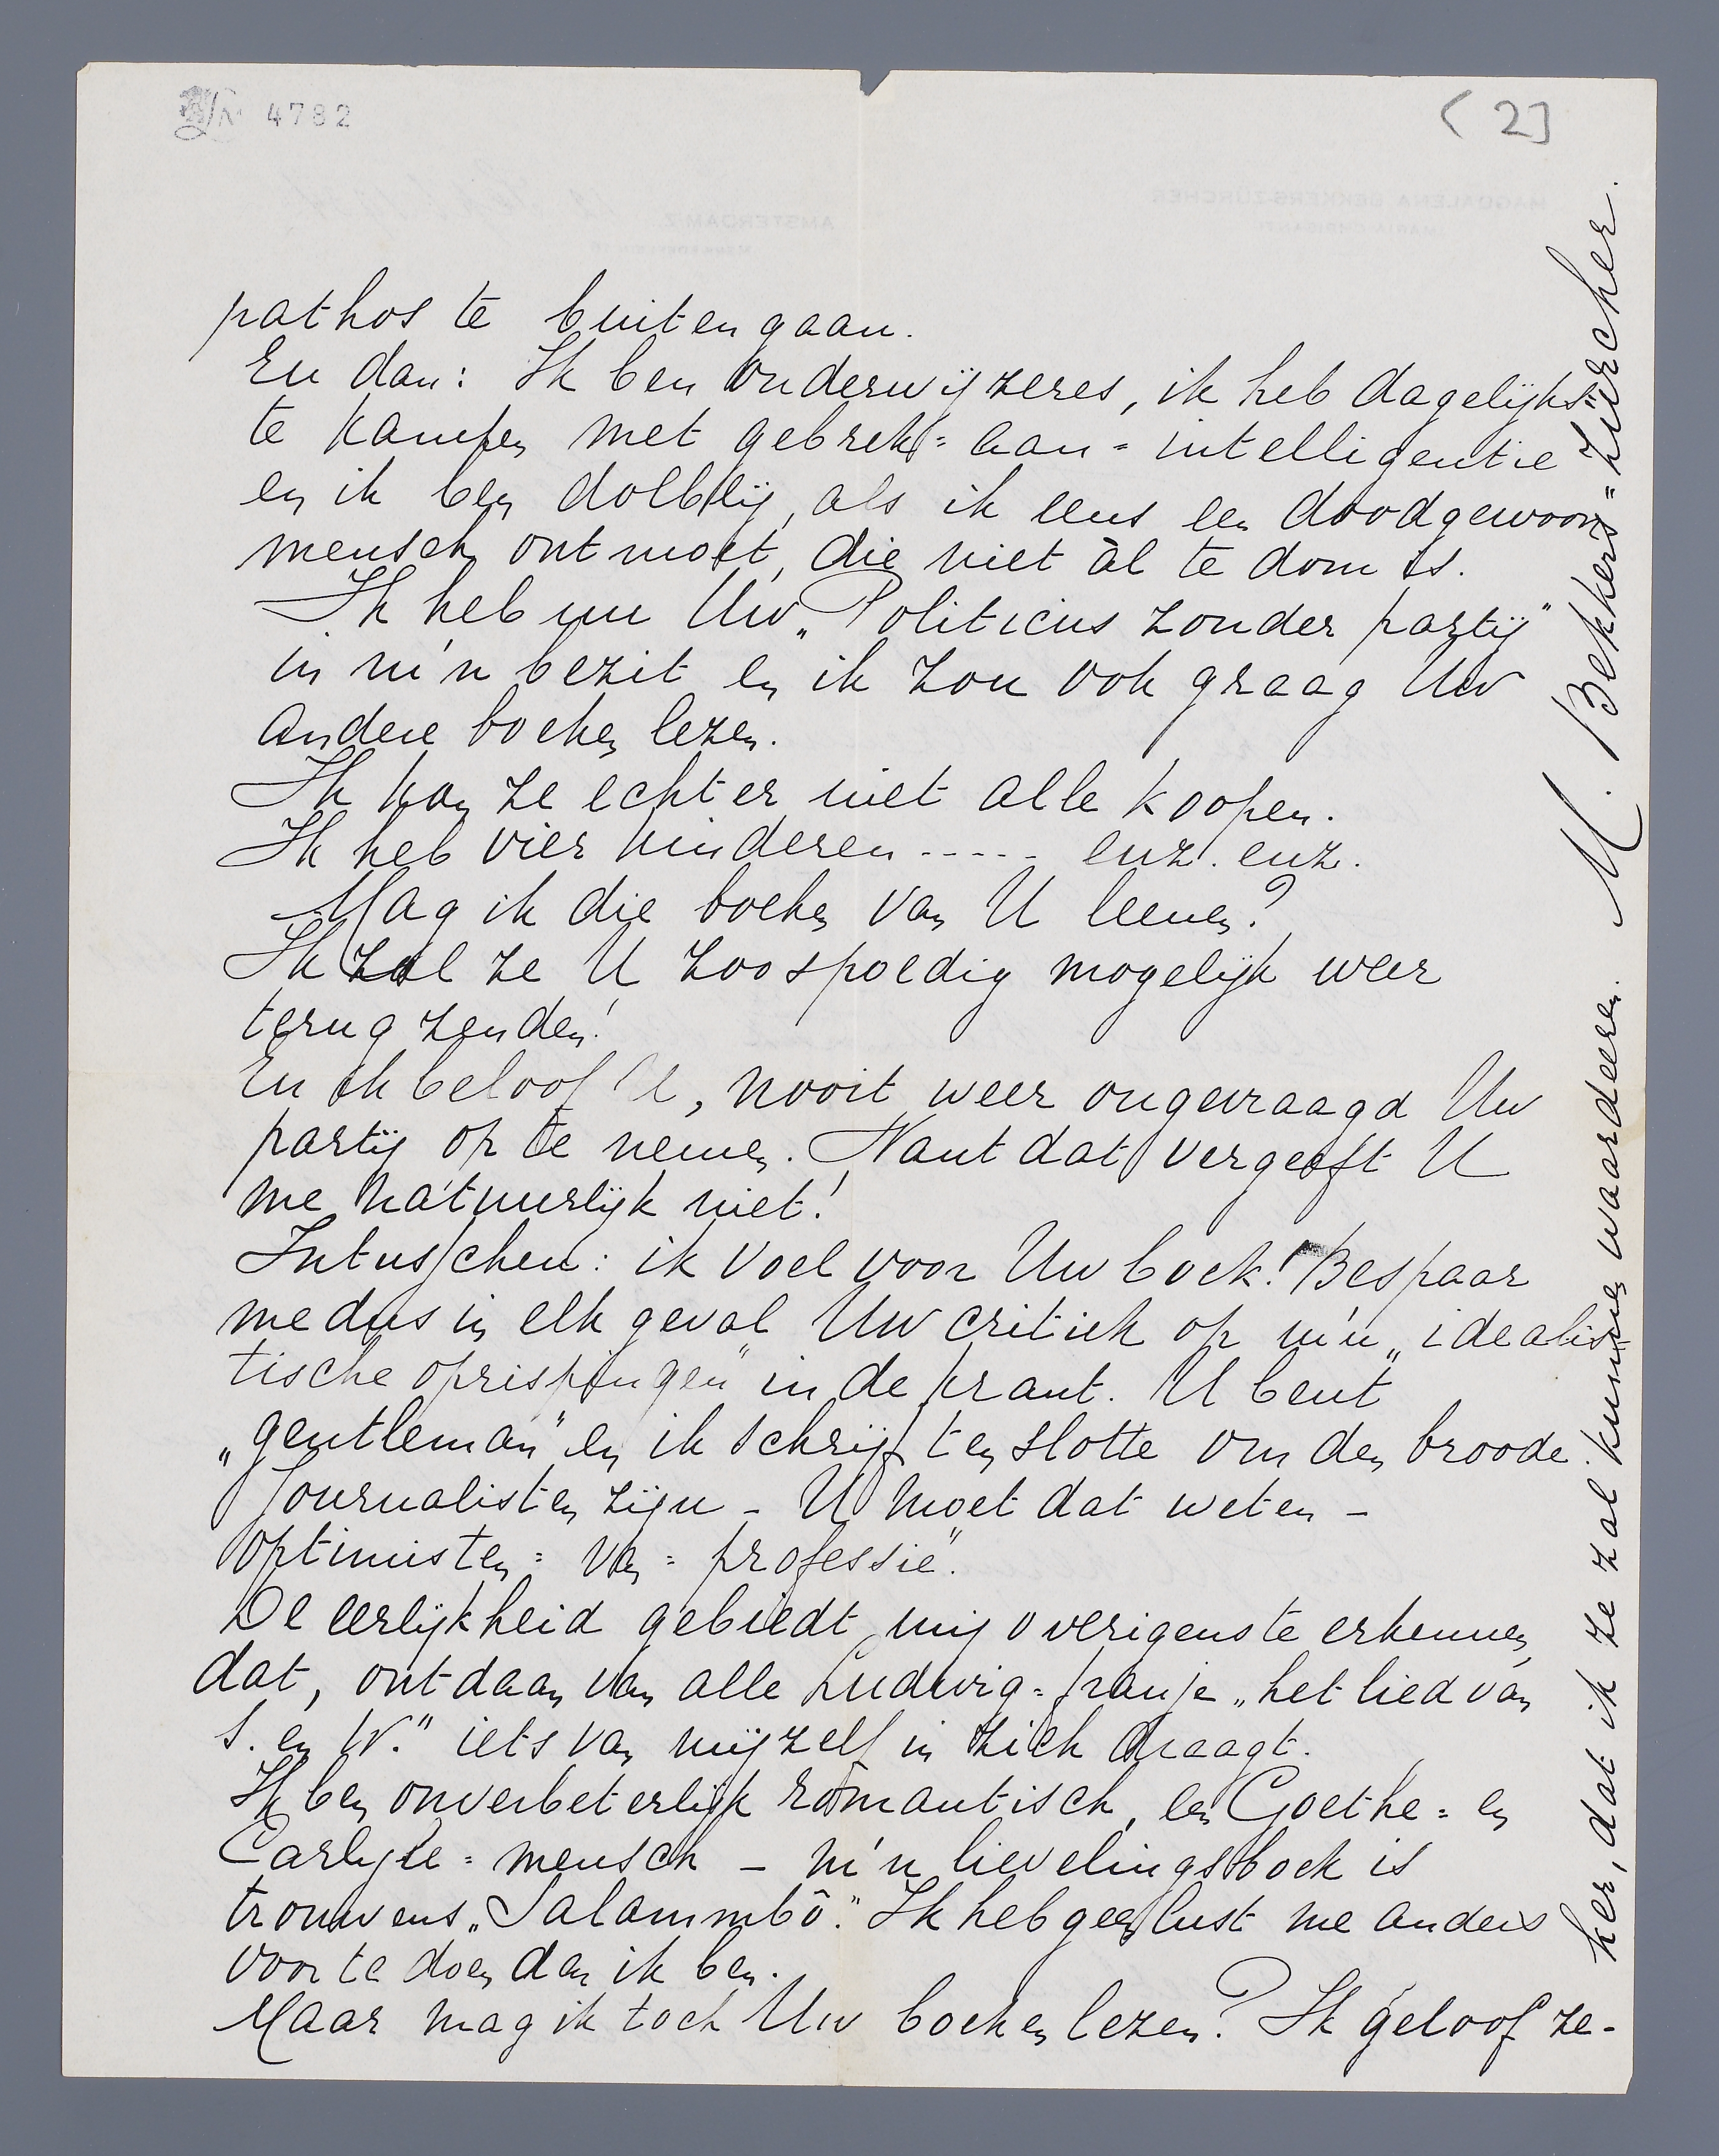 4782
(2]
pathos te buiten gaan.
En dan: Ik ben onderwijzeres, ik heb dagelijks
te kampen met gebrek=aan=intelligentie
en ik ben dolblij, als ik eens een doodgewoon
mensch ontmoet, die niet àl te dom is.
Ik heb nu Uw „Politicus zonder partij"
in m'n bezit en ik zou ook graag Uw
andere boeken lezen.
Ik kan ze echter niet alle koopen.
Ik heb vier kinderen ----- enz. enz.
Mag ik die boeken van U leenen?
Ik zal ze U zoo spoedig mogelijk weer
terug zenden!
En ik beloof U, nooit weer ongevraagd Uw
partij op te nemen. Want dat vergeeft U
me natuurlijk niet!
Intusschen: ik voel voor Uw boek! Bespaar
me dus in elk geval Uw critiek op m'n „idealis=
tische oprispingen" in de krant. U bent
„gentleman" en ik schrijf ten slotte om den broode.
Journalisten zijn – U moet dat weten –
optimisten=van=professie".
De eerlijkheid gebiedt mij overigens te erkennen,
dat, ontdaan van alle Ludwig=franje „het lied van
S. en W." iets van mijzelf in zich draagt.
Ik ben onverbeterlijk romantisch, een Goethe= en
Carlyle=mensch – m'n lievelingsboek is
trouwens „Salammbô." Ik heb geen lust me anders
voor te doen dan ik ben.
Maar mag ik toch Uw boeken lezen? Ik geloof ze-
ker, dat ik ze zal kunnen waardeeren. M. Bekkers=Zürcher.
MAGDALENA BEKKERS-ZÜRCHER
AMSTERDAM Z.